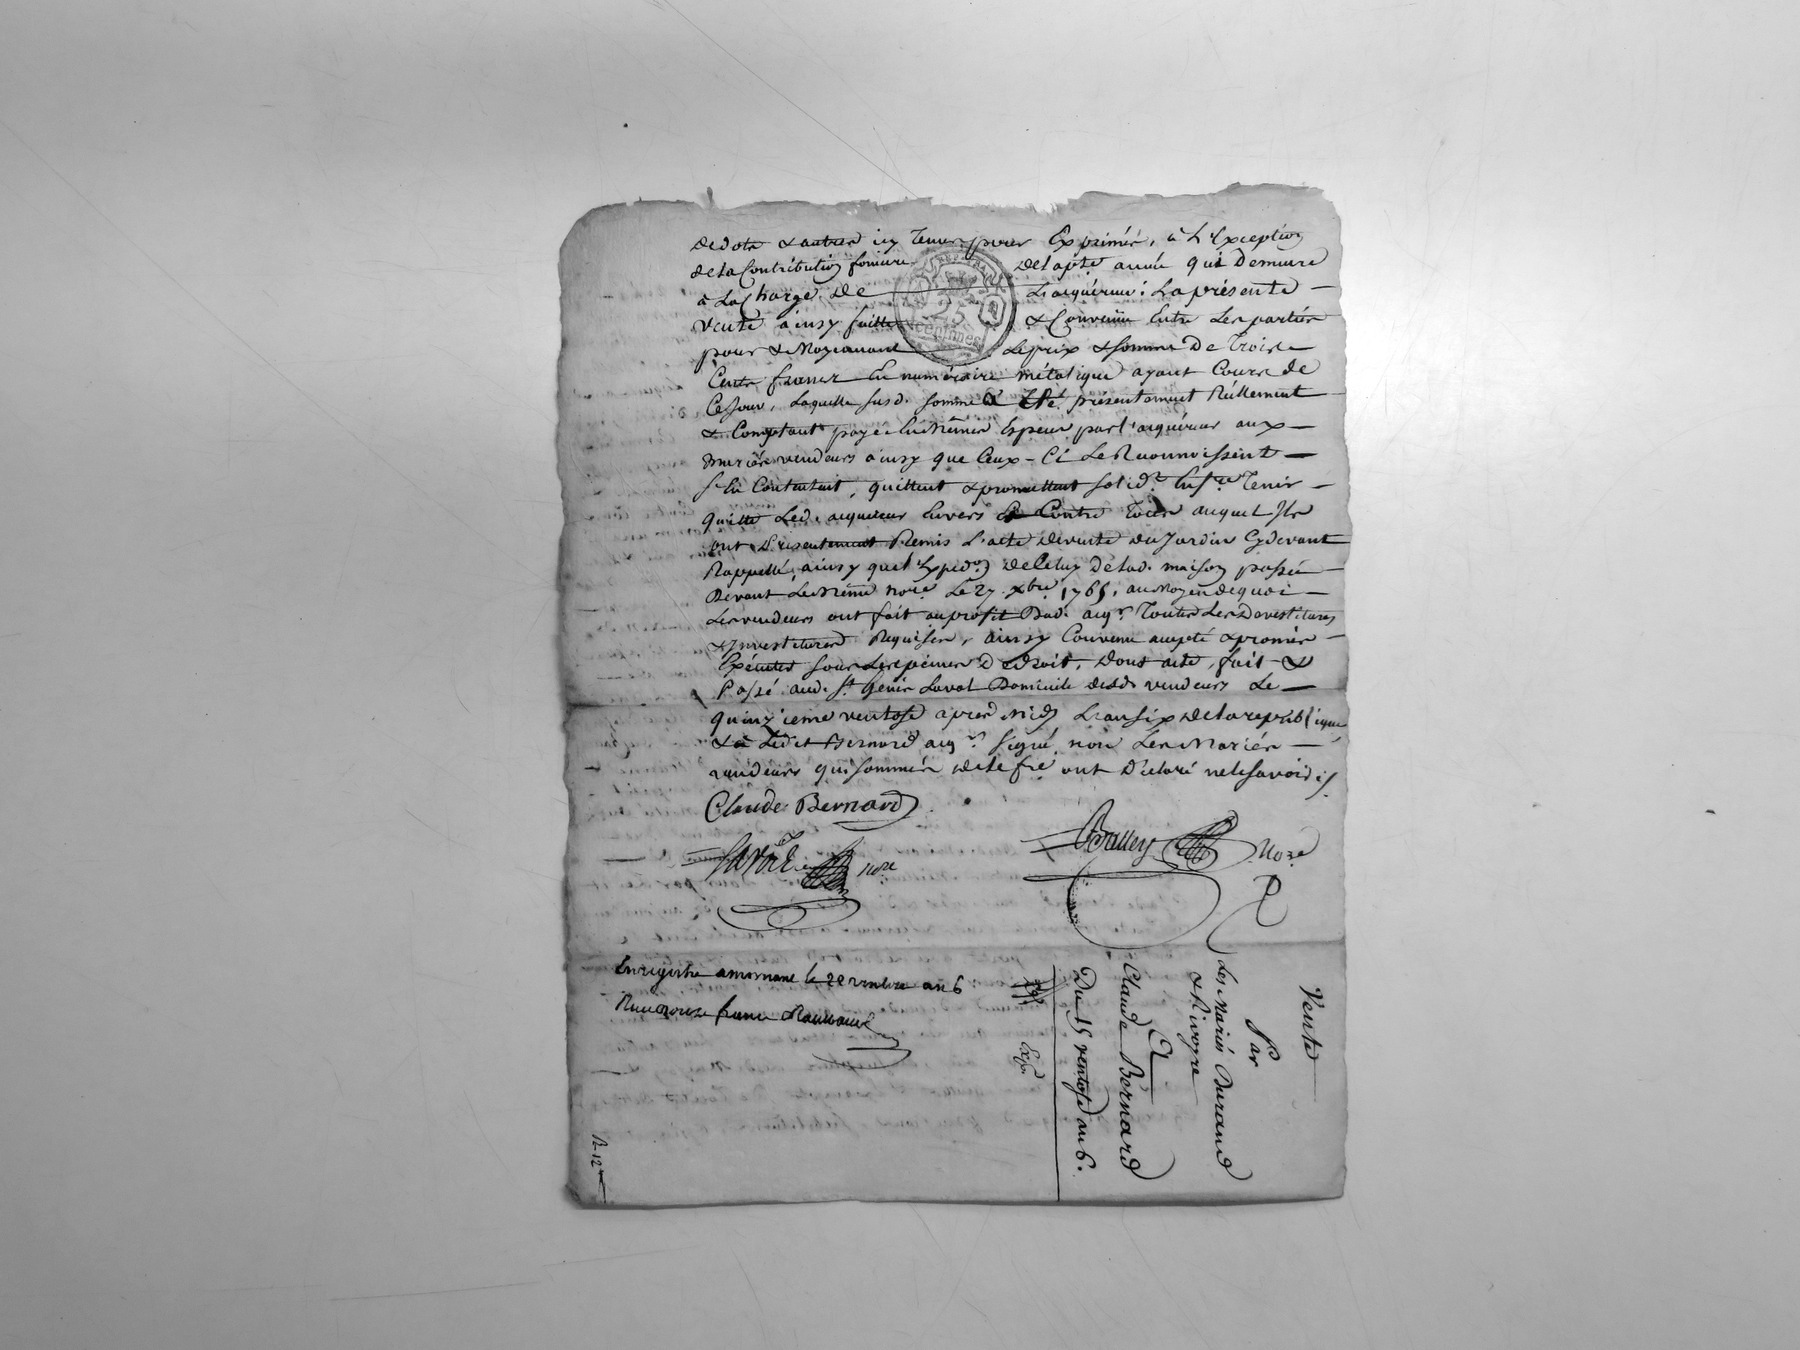 de dote & autres icy tenus pour Exprimés, à L'Exception
de la Contribution fonciere de la pte année qui Demeure
à La Charge De L'acquéreur : La présente
vente ainsy faitte & Convenüe Entre Les parties
pour & Moyennant Le prix & somme De Trois
Cents francs En numéraire métalique ayant Cours de
Ce Jour, Laquelle susd. somme a Eté présentement Réellement
& Comptant payée En Mêmes Espèces par l'acquéreur aux
mariés vendeurs ainsy que Ceux-Ci Le Reconnoissent
s'En Contentent, quittent & promettent solid.
quitte Led. acquéreur Envers & Contre Tous auquel Ils
ont Présentement Remis L'acte de vente du Jardin Cydevant
Rappellé, ainsy que l'Expedon de Celuy de lad. maison passée
Devant Le Même nore Le 27 xbre 1765, au Moyen de quoi
Les vendeurs ont fait au profit Dud. aqr Toutes Les Devestitures
& Investitures Requises, ainsy Convenu accepté & promis
Exécuter sous Les peines De droit, Dont acte, fait &
Passé aud. St Genis Laval Domicile desd. vendeurs Le
quinzieme ventose après Midy L'an six de la republique
& a Ledit Bernard aqr signé, non Les Mariés
vendeurs qui sommés de le fre ont Déclaré ne le savoir
Claude Bernard
Lavau nore
Balley Nore
Enregistré a mornant le 22 ventose an 6
Reçu douze francs
Exp.
Vente
Par
Les Mariés Durand
& Rivoyre
A
Claude Bernard
Du 15 ventose an 6.
R 12
25
centimes
REP. FRA.